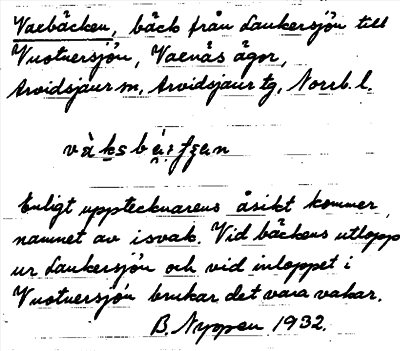 Vaebäcken, bäck från Laukersjön till
Vuotnersjön, Vaenäs ägor,
Arvidsjaur sn, Arvidsjaur tg, Norrb. l.
Enligt upptecknarens åsikt kommer
namnet av isvak. Vid bäckens utlopp
ur Laukersjön och vid inloppet i
Vuotnersjön brukar det vara vakar.
B. Nyppen 1932.